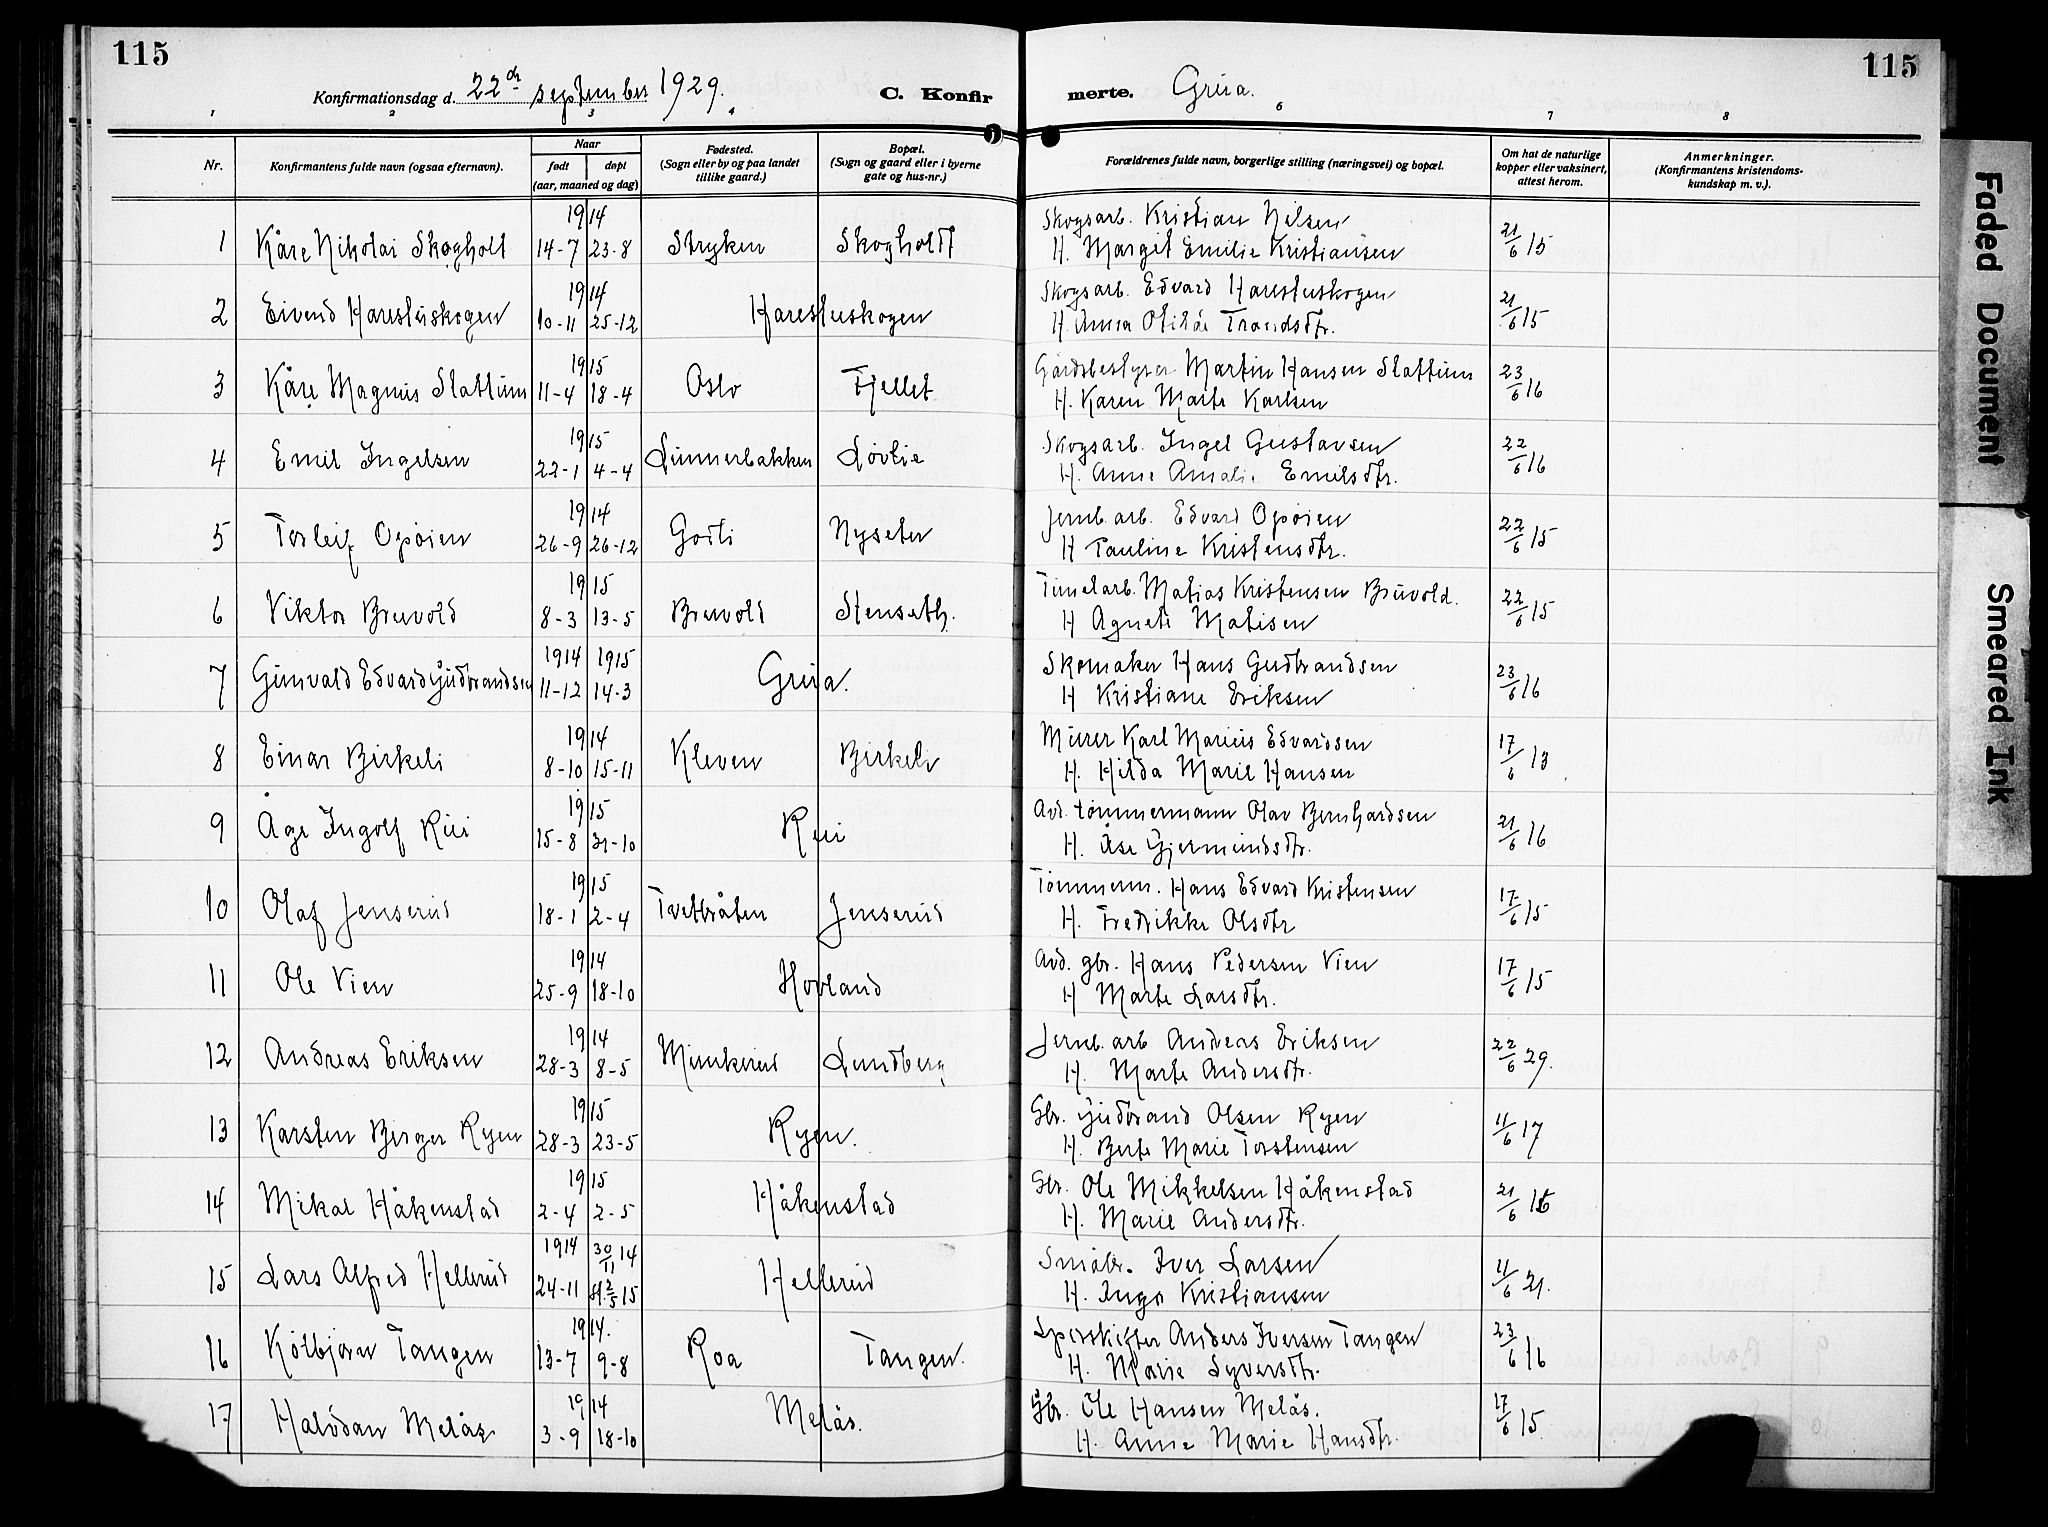 115
115
Konfirmationsdag d. 22de september 1929.
C. Konfirmerte. Grua.
1 2 3 4 6 7 8
Nr.
Konfirmantens fulde navn (ogsaa efternavn).
Naar
født
døpt
(aar, maaned og dag)
Fødested.
(Sogn eller by og paa landet
tillike gaard.)
Bopæl.
(Sogn og gaard eller i byerne
gate og hus-nr.)
Forældrenes fulde navn, borgerlige stilling (næringsvei) og bopæl.
Om hat de naturlige
kopper eller vaksinert,
attest herom.
Anmerkninger.
(Konfirmantens kristendoms-
kundskap m. v.).
1914 Skogsarb. Kristian Nilsen
1 Kåre Nikolai Skogholt 14-7 23-8 Stryken Skogholdt H. Margit Emilie Kristiansen 21/6 15
1914 Skogsarb. Edvard Harestuskogen
2 Eivind Harestuskogen 10-11 25-12 Harestuskogen H. Anna Otilie Trondsdtr. 21/6 15
1915 Gårdsbestyrer Martin Hansen Slattum
3 Kåre Magnus Slattum 11-4 18-4 Oslo Fjellet H. Karen Marte Karlsen 23/6 16
1915 Skogsarb. Ingel Gustavsen
4 Emil Ingelsen 22-1 4-4 Lunnerbakken Løvlie H. Anne Amalie Emilsdtr. 22/6 16
1914 Jernb. arb. Edvard Opøien
5 Torleif Opøien 26-9 26-12 Godli Nyseter H Pauline Kristensdtr. 22/6 15
1915 Timetarb. Matias Kristensen Bruvold.
6 Viktor Bruvold 8-3 13-5 Bruvold Stenseth. H Agnete Matisen 22/6 15
1914 1915 Skomaker Hans Gudbrandsen
7 Gunvald Edvard Gudbrandsen 11-12 14-3 Grua. H Kristiane Eriksen 23/6 16
1914 Murer Karl Marius Edvardsen
8 Einar Birkeli 8-10 15-11 Kleven Birkeli H. Hilda Marie Hansen 17/6 13
1915 Avd. tømmermann Olav Bernhardsen
9 Åge Ingolf Rui 15-8 31-10 Rui H. Åse Gjermundsdtr. 21/6 16
1915 Tømmerm. Hans Edvard Kristensen
10 Olaf Jenserud 18-1 2-4 Tvetbråten Jenserud H. Fredrikke Olsdtr 17/6 15
1914 Avd. gbr. Hans Pedersen Vien
11 Ole Vien 25-9 18-10 Hovland H Marte Larsdtr. 17/6 15
1914 Jernb. arb Andreas Eriksen
12 Andreas Eriksen 28-3 8-5 Munkerud Lundberg H. Marte Andersdtr. 22/6 29.
1915 Gbr. Gudbrand Olsen Ryen
13 Karsten Berger Ryen 28-3 23-5 Ryen. H. Berte Marie Torstensen 11/6 17
1915 Gbr. Ole Mikkelsen Håkenstad
14 Mikal Håkenstad 2-4 2-5 Håkenstad H. Marie Andersdtr. 21/6 16
1914 30/11 14 Småbr. Iver Larsen
15 Lars Alfred Hellerud 24-11 st. 2/5 15 Hellerud H. Inga Kristiansen 11/6 21.
1914. Sporskifter Anders Iversen Tangen
16 Kolbjørn Tangen 13-7 9-8 Roa Tangen. H. Marie Syversdtr. 23/6 16
1914 Gbr. Ole Hansen Melås.
17 Halvdan Melås 3-9 18-10 Melås. H. Anne Marie Hansdtr. 17/6 15.
Faded Document
Smeared Ink